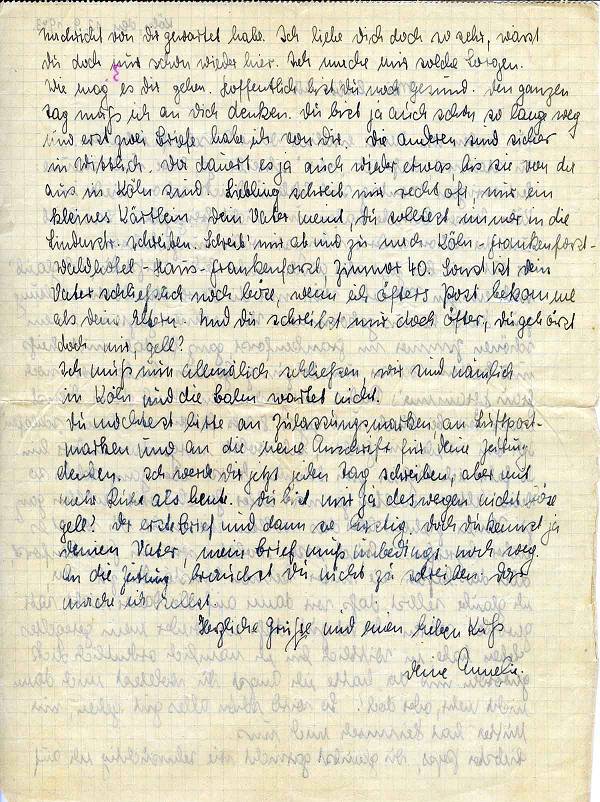 Nachricht von Dir gewartet habe. Ich liebe Dich doch so sehr, wärst
Du doch nur schon wieder hier. Ich mache mir solche Sorgen.
Wie mag es Dir gehen. Hoffentlich bist Du noch gesund. Den ganzen
Tag muß ich an Dich denken. Du bist ja auch schon so lange weg
und erst zwei Briefe habe ich von Dir. Die anderen sind sicher
in Wittlich. Da dauert es ja auch wieder etwas bis sie von da
aus in Köln sind. Liebling schreib mir recht oft, nur ein
kleines Kärtlein. Dein Vater meint, Du solltest immer in die
Lindenstr. schreiben. Schreib' mir ab und zu nach Köln-Frankenforst-
Waldhotel-Haus-Frankenforst Zimmer 40. Sonst ist Dein
Vater schließlich noch böse, wenn ich öfters Post bekomme
als Deine Eltern. Und Du schreibst mir doch öfter, Du gehörst
doch mir, gell?
Ich muß nun allmählich schließen, wir sind nämlich
in Köln und die Bahn wartet nicht.
Du möchtest bitte an Zulassungsmarken an Luftpost-
marken und an die neue Anschrift für Deine Zeitung
denken. Ich werde Dir jetzt jeden Tag schreiben, aber mit
mehr Ruhe als heute. Du bist mir ja deswegen nicht böse
gell? Der erste Brief und dann so hastig. Doch Du kennst ja
Deinen Vater, mein Brief muß unbedingt noch weg.
An die Zeitung brauchst Du nicht zu schreiben das
mache ich selbst.
Herzliche Grüße und einen lieben Kuß
Deine Annelie.